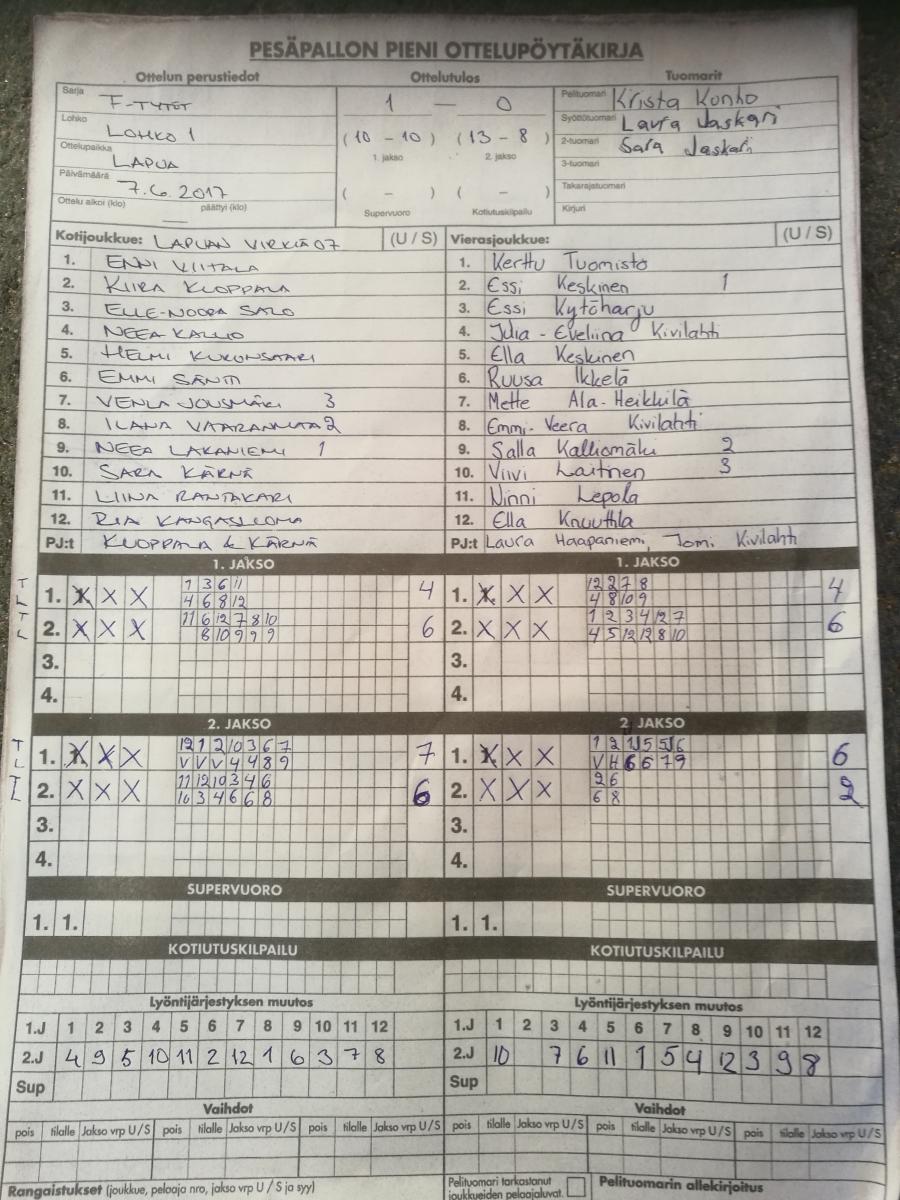 PESÄPALLON PIENI OTTELUPÖYTÄKIRJA
Ottelun perustiedot Ottelutulos Tuomarit
Sarja F-TYTÖT 1 — 0 Pelituomari Krista Konho
Lohko LOHKO 1 (10 - 10) (13 - 8) Syöttötuomari Laura Jaskari
Ottelupaikka LAPUA 1. jakso 2. jakso 2-tuomari Sara Jaskari
Päivämäärä 7.6.2017 ( - ) ( - ) 3-tuomari
Ottelu alkoi (klo) — päättyi (klo) Supervuoro Kotiutuskilpailu Takarajatuomari
Kirjuri
Kotijoukkue: LAPUAN VIRKIÄ 07 (U / S) Vierasjoukkue: (U / S)
1. ENNI VIITALA 1. Kerttu Tuomisto
2. KIIRA KUOPPALA 2. Essi Keskinen 1
3. ELLE-NOORA SALO 3. Essi Kytöharju
4. NEEA KALLIO 4. Julia-Eveliina Kivilahti
5. HELMI KUKONSAARI 5. Ella Keskinen
6. EMMI SÄNTTI 6. Ruusa Ikkelä
7. VENLA JOUSMÄKI 3 7. Mette Ala-Heikkilä
8. ILANA VAARANMAA 2 8. Emmi-Veera Kivilahti
9. NEEA LAKANIEMI 1 9. Salla Kalliomäki 2
10. SARA KÄRNÄ 10. Viivi Laitinen 3
11. LIINA RANTAKARI 11. Ninni Lepola
12. RIA KANGASLUOMA 12. Ella Knuuttila
PJ:t KUOPPALA & KÄRNÄ PJ:t Laura Haapaniemi, Tomi Kivilahti
1. JAKSO 1. JAKSO
T 1. X X X 1 3 6 11 4 1. X X X 12 2 7 8 4
L 4 6 8 12 4 8 10 9
T 2. X X X 11 6 12 7 8 10 6 2. X X X 1 2 3 4 12 7 6
L 8 10 9 9 9 4 5 12 12 8 10
3. 3.
4. 4.
2. JAKSO 2. JAKSO
T 1. X X X 12 1 2 10 3 6 7 7 1. X X X 1 2 1 5 5 6 6
L V V V 4 4 8 9 V H 6 6 7 9
T 2. X X X 11 12 10 3 4 6 6 2. X X X 2 6 2
L 10 3 4 6 6 8 6 8
3. 3.
4. 4.
SUPERVUORO SUPERVUORO
1. 1. 1. 1.
KOTIUTUSKILPAILU KOTIUTUSKILPAILU
Lyöntijärjestyksen muutos Lyöntijärjestyksen muutos
1.J 1 2 3 4 5 6 7 8 9 10 11 12 1.J 1 2 3 4 5 6 7 8 9 10 11 12
2.J 4 9 5 10 11 2 12 1 6 3 7 8 2.J 10 7 6 11 1 5 4 12 3 9 8
Sup Sup
Vaihdot Vaihdot
pois tilalle Jakso vrp U / S pois tilalle Jakso vrp U / S pois tilalle pois tilalle Jakso vrp U / S pois tilalle Jakso vrp U / S pois tilalle Jakso vrp U / S
Rangaistukset (joukkue, pelaaja nro, jakso vrp U / S ja syy) Pelituomari tarkastanut Pelituomarin allekirjoitus
joukkueiden pelaajaluvat.